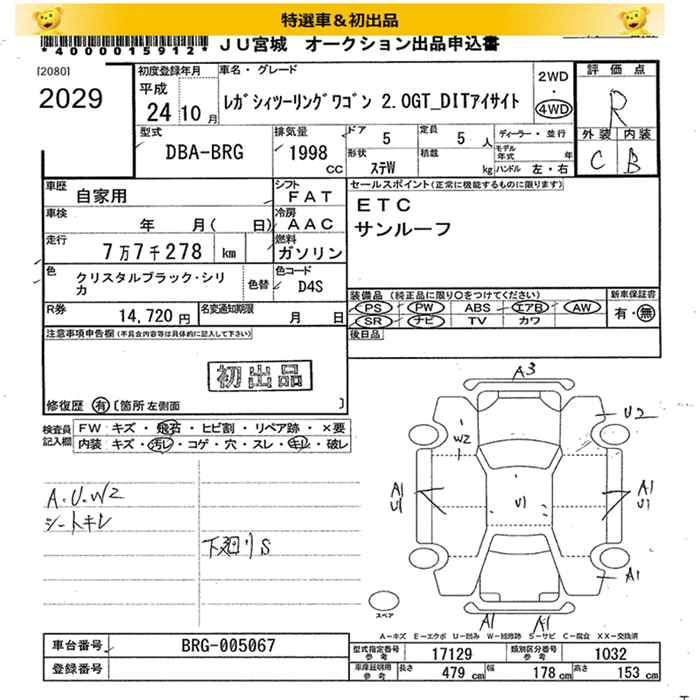 特選車＆初出品
*40000015912* JU宮城 オークション出品申込書
[2080]
2029
初度登録年月
平成
24年10月
車名・グレード
ﾚｶﾞｼｨﾂｰﾘﾝｸﾞﾜｺﾞﾝ 2.0GT_DITｱｲｻｲﾄ
2WD
・
4WD
評価点
R
外装 内装
C B
型式
DBA-BRG
排気量
1998
CC
ドア 5
定員 5 人
形状
ｽﾃW
積載
kg
ディーラー・並行
モデル年式 年
ハンドル 左・右
車歴
自家用
シフト
FAT
車検
年 月( 日)
冷房
AAC
走行
7万7千278 km
燃料
ガソリン
色
クリスタルブラック・シリカ
色替
色コード
D4S
R券
14,720 円
名変通知期限
月 日
セールスポイント(正常に機能するものに限ります)
ETC
サンルーフ
装備品 (純正品に限り○をつけてください)
PS PW ABS エアB AW
SR ナビ TV カワ
新車保証書
有・無
後日品
注意事項申告欄(不具合内容等は具体的に記入して下さい)
初出品
修復歴 有 [箇所 左側面 ]
検査員記入欄
FW キズ・飛石・ヒビ割・リペア跡・×要
内装 キズ・汚レ・コゲ・穴・スレ・キレ・破レ
A.U.W2
シートキレ
下廻りS
A3
U2
W2
A1
U1
U1
A1
U1
A1
A1
A1
スペア
A-キズ E-エクボ U-凹み W-補修跡 S-サビ C-腐食 XX-交換済
車台番号 BRG-005067
登録番号
型式指定番号 参考 17129
類別区分番号 参考 1032
車庫証明用 参考 長さ 479 cm 幅 178 cm 高さ 153 cm